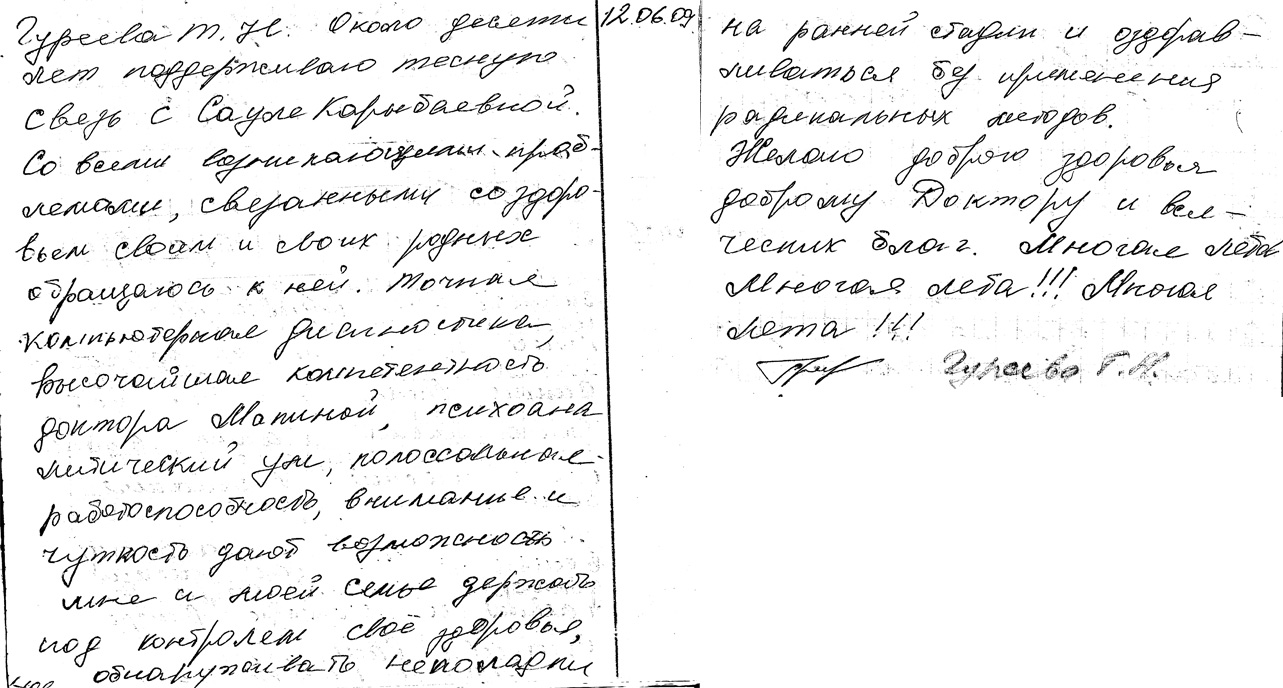 Гурсева Т. Н. Около десяти
лет поддерживаю тесную
связь с Сауле Карыбаевной.
Со всеми возникающими проб-
лемами, связанными со здоро-
вьем своим и своих родных
обращаюсь к ней. Точная
компьютерная диагностика,
высочайшая компетентность
доктора Мапиной, психоана
литический ум, колоссальная
работоспособность, внимание и
чуткость дают возможность
мне и моей семье держать
под контролем своё здоровье,
обнаруживать неполадки
12.06.09
на ранней стадии и оздорав-
ливаться без применения
радикальных методов.
Желаю доброго здоровья
доброму Доктору и вся-
ческих благ. Многая лета
Многая лета!!! Многая
лета!!!
Гурсева Т.Н.